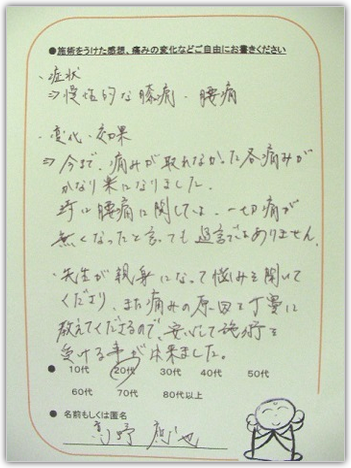 ●施術をうけた感想、痛みの変化などご自由にお書きください
・症状
⇒慢性的な膝痛・腰痛
・変化・効果
⇒今まで、痛みが取れなかった各痛みが
かなり楽になりました。
特に腰痛に関しては、一切痛が
無くなったと言っても過言ではありません。
・先生が親身になって悩みを聞いて
くださり、また痛みの原因を丁寧に
教えてくださるので、安心して施術を
受ける事が出来ました。
● 10代 20代 30代 40代 50代
60代 70代 80代以上
● 名前もしくは匿名
野 也